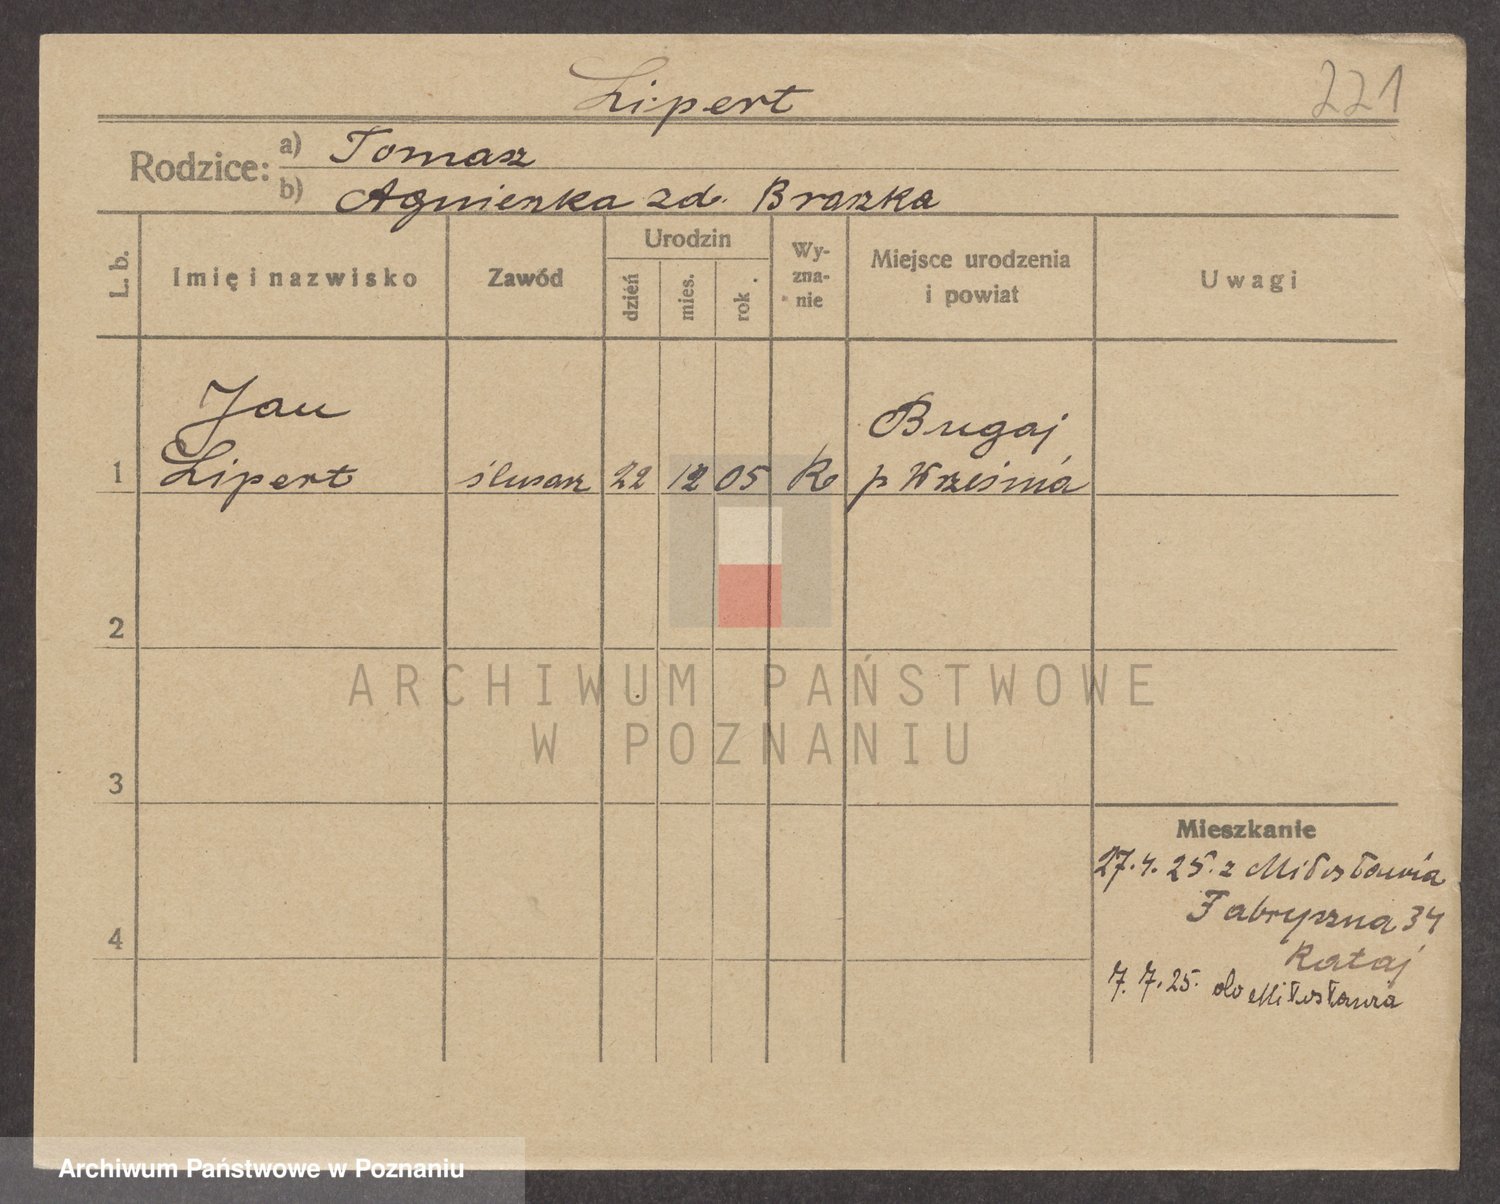 Lipert
221
Rodzice:
a) Tomasz
b) Agnieszka zd. Braszka
L. b.
Imię i nazwisko
Zawód
Urodzin
dzień
mies.
rok
Wy-
zna-
nie
Miejsce urodzenia
i powiat
Uwagi
Jan
Bugaj
1 Lipert ślusarz 22 12 05 R p Września
2
ARCHIWUM PAŃSTWOWE
W POZNANIU
3
Mieszkanie
27.4.25. z Miłosławia
Fabryczna 34
4
Rataj
7.7.25. do Miłosława
Archiwum Państwowe w Poznaniu